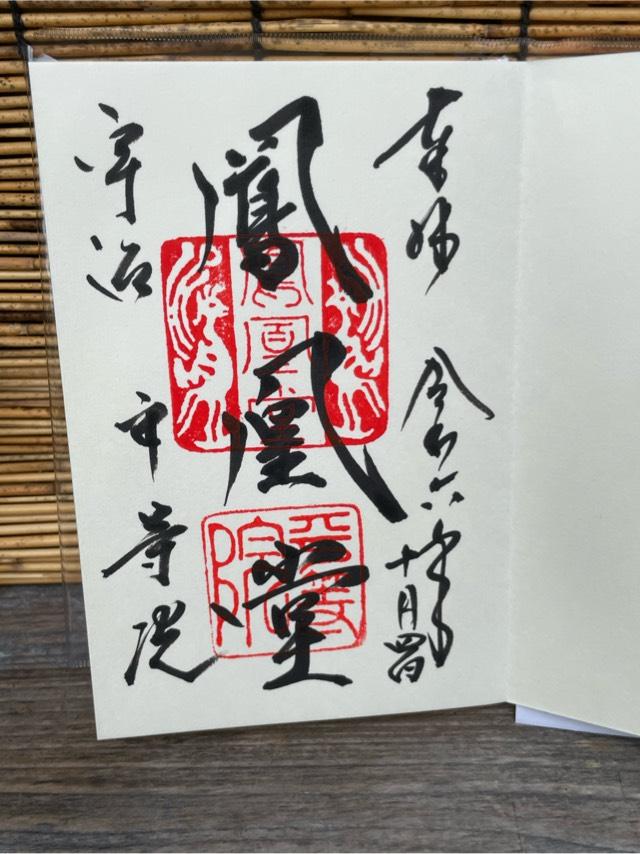 奉拝 令和六年 十月四日
鳳凰堂
宇治 平等院
鳳凰堂
平等院